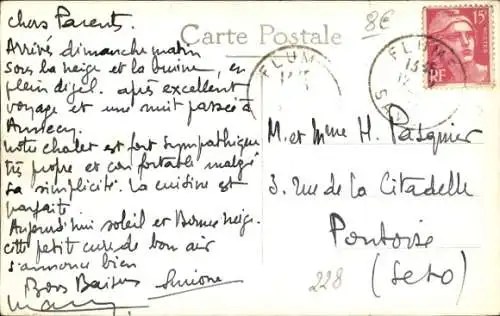 chers Parents.
Arrivés dimanche matin
sous la neige et la bruine, en
plein dégel. après excellent
voyage et une nuit passée à
Annecy.
notre chalet est fort sympathique
très propre et confortable malgré
sa simplicité. La cuisine est
parfaite
Aujourd'hui soleil et Bonne neige.
cette petit cure de bon air
s'annonce bien
Bons Baisers Simone
Carte Postale
8€
FLUM
FLUM
15F
RF
M. et Mme H. Pasquier
3. Rue de la Citadelle
Pontoise
(S et O)
228